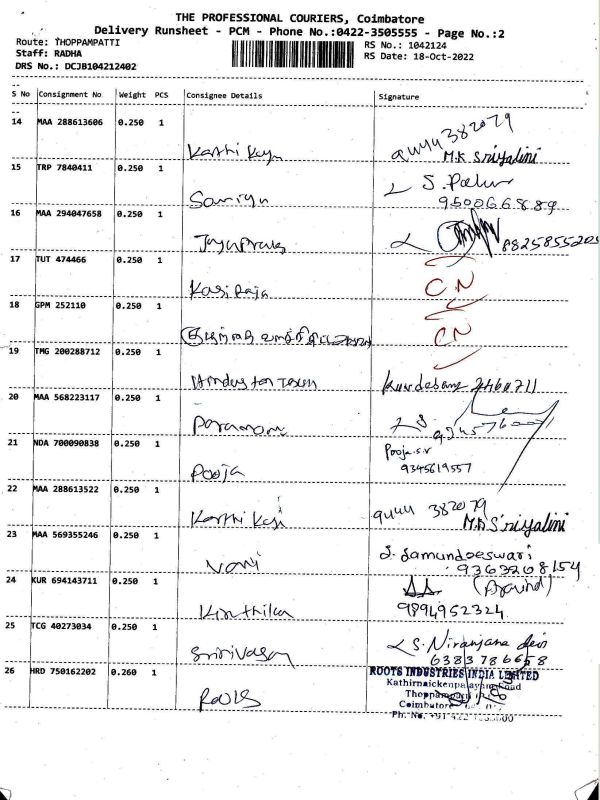 THE PROFESSIONAL COURIERS, Coimbatore
Delivery Runsheet - PCM - Phone No.:0422-3505555 - Page No.:2
Route: THOPPAMPATTI
Staff: RADHA
DRS No.: DCJB104212402
RS No.: 1042124
RS Date: 18-Oct-2022
S No Consignment No Weight PCS Consignee Details Signature
14 MAA 288613606 0.250 1
9444 382079
M.K Sriyalini
15 TRP 7840411 0.250 1
Saniya
950066889
16 MAA 294047658 0.250 1
8825855205
17 TUT 474466 0.250 1
Kasi Raja CN
18 GPM 252110 0.250 1
CN
19 TMG 200288712 0.250 1
20 MAA 568223117 0.250 1
21 NDA 700090838 0.250 1
Pooja Pooja.S.V
9345619557
22 MAA 288613522 0.250 1
9444 382079
23 MAA 569355246 0.250 1
Vani S. Samundeeswari
9363208154
24 KUR 694143711 0.250 1
(Aravind)
9894952324
25 TCG 40273034 0.250 1
Srinivasan S. Niranjana devi
6383786668
26 HRD 750162202 0.260 1
Roots
ROOTS INDUSTRIES INDIA LIMITED
Kathirnaickenpalayam Road
Coimbatore